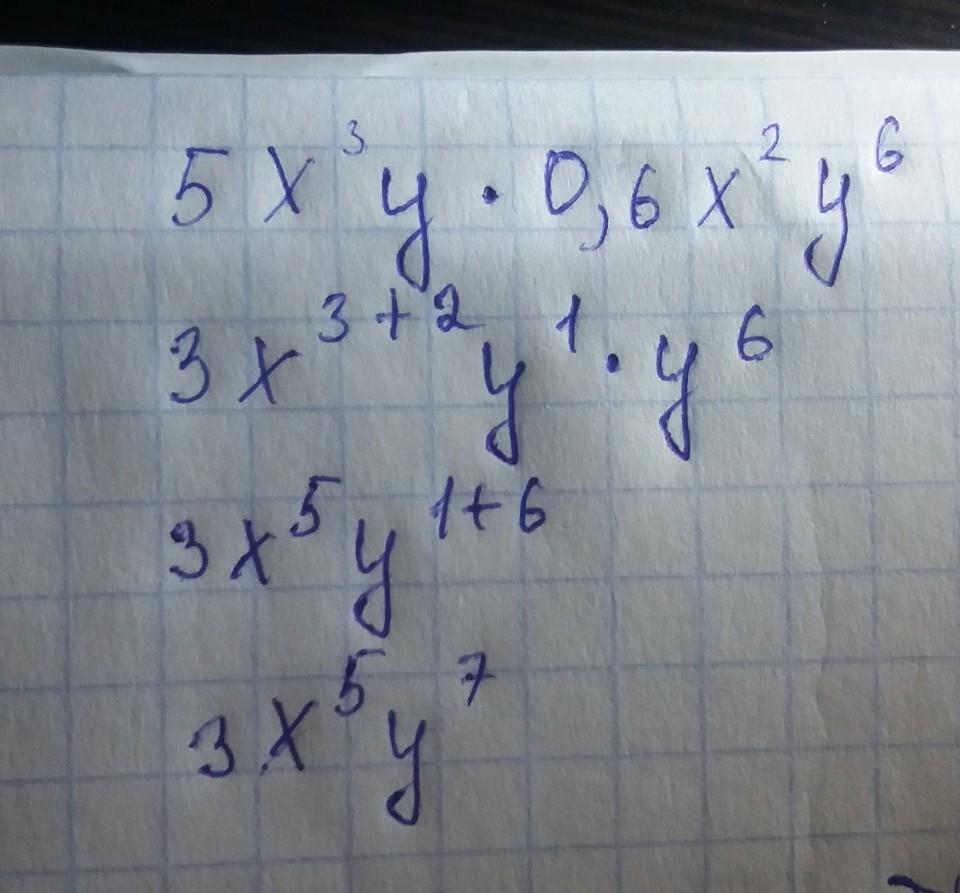 5x³y · 0,6x²y⁶
3x³⁺²y¹ · y⁶
3x⁵y¹⁺⁶
3x⁵y⁷